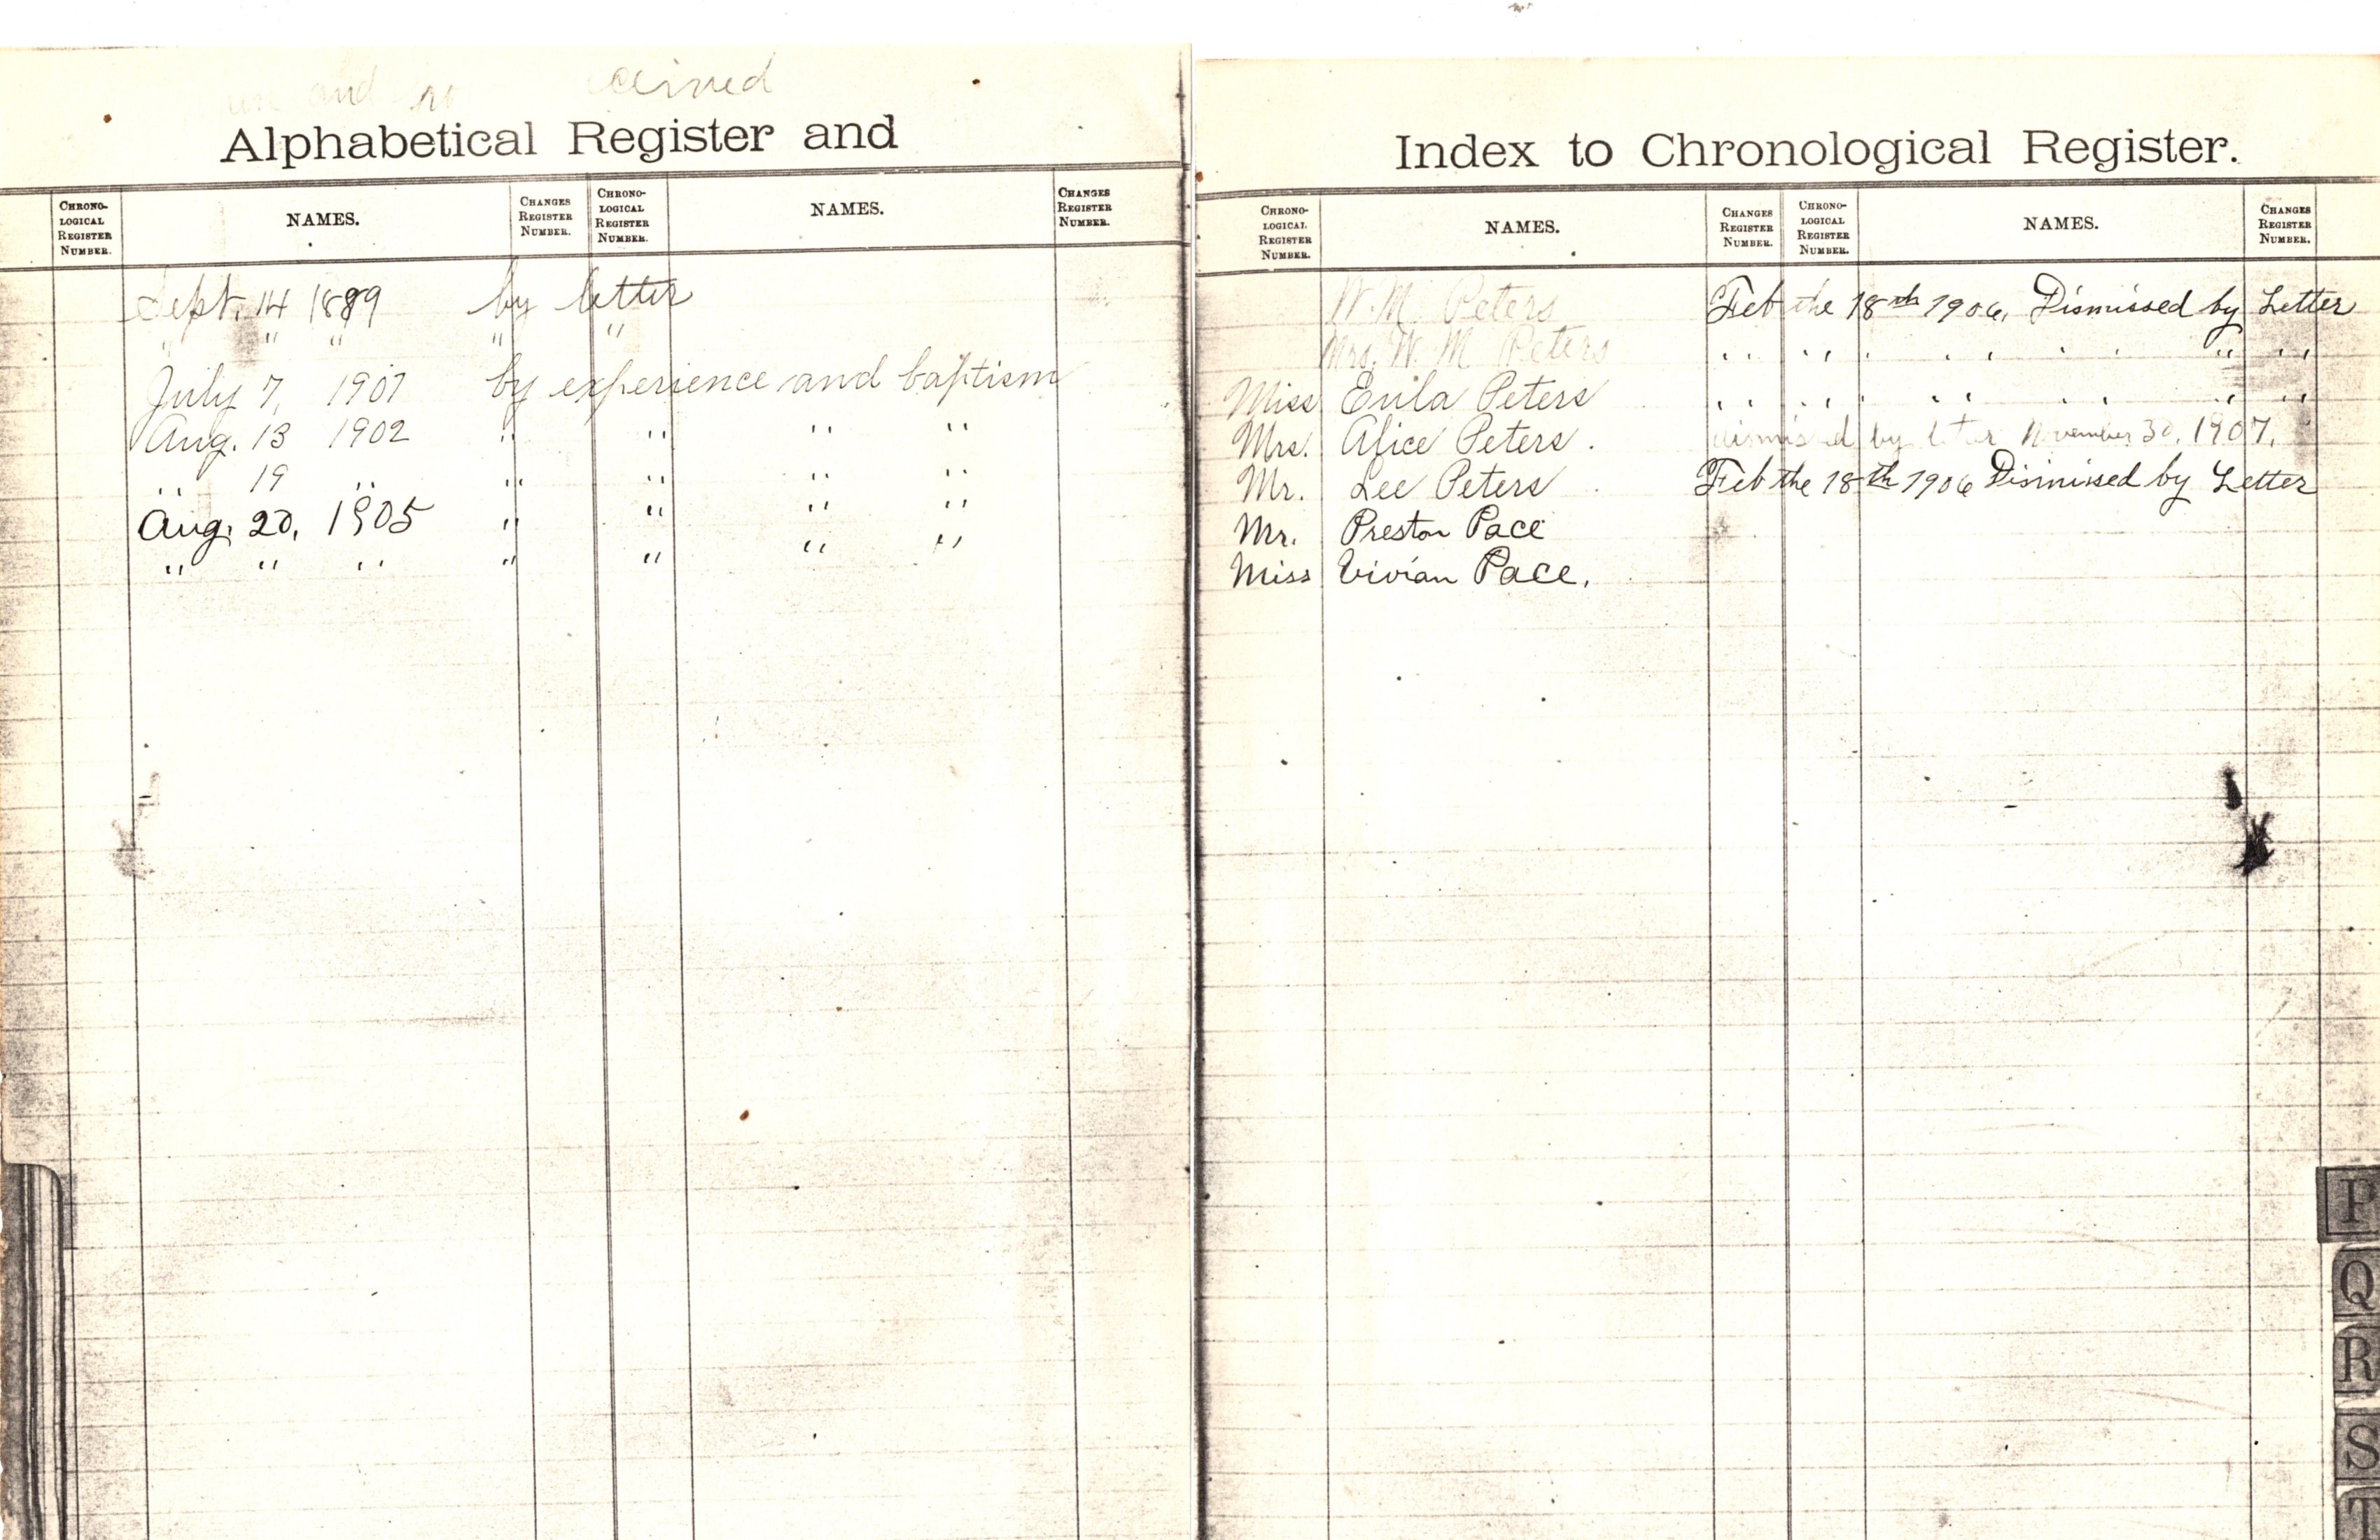 and ceived
Alphabetical Register and
CHRONO-LOGICAL REGISTER NUMBER. NAMES. CHANGES REGISTER NUMBER. CHRONO-LOGICAL REGISTER NUMBER. NAMES. CHANGES REGISTER NUMBER.
Sept. 14 1899 by letter
" " " " "
July 7, 1901 by experience and baptism
Aug. 13 1902 " " " "
" 19 " " " " "
Aug. 20, 1905 " " " "
" " " " " " "
Index to Chronological Register.
CHRONO-LOGICAL REGISTER NUMBER. NAMES. CHANGES REGISTER NUMBER. CHRONO-LOGICAL REGISTER NUMBER. NAMES. CHANGES REGISTER NUMBER.
W. M. Peters Feb the 18th 1906, Dismissed by Letter
Mrs. W. M Peters " " " " " " "
Miss Eula Peters " " " " " " "
Mrs. Alice Peters. dismissed by letter November 30, 1907.
Mr. Lee Peters Feb the 18th 1906 Dismissed by Letter
Mr. Preston Pace
Miss Vivian Pace.
P
Q
R
S
T